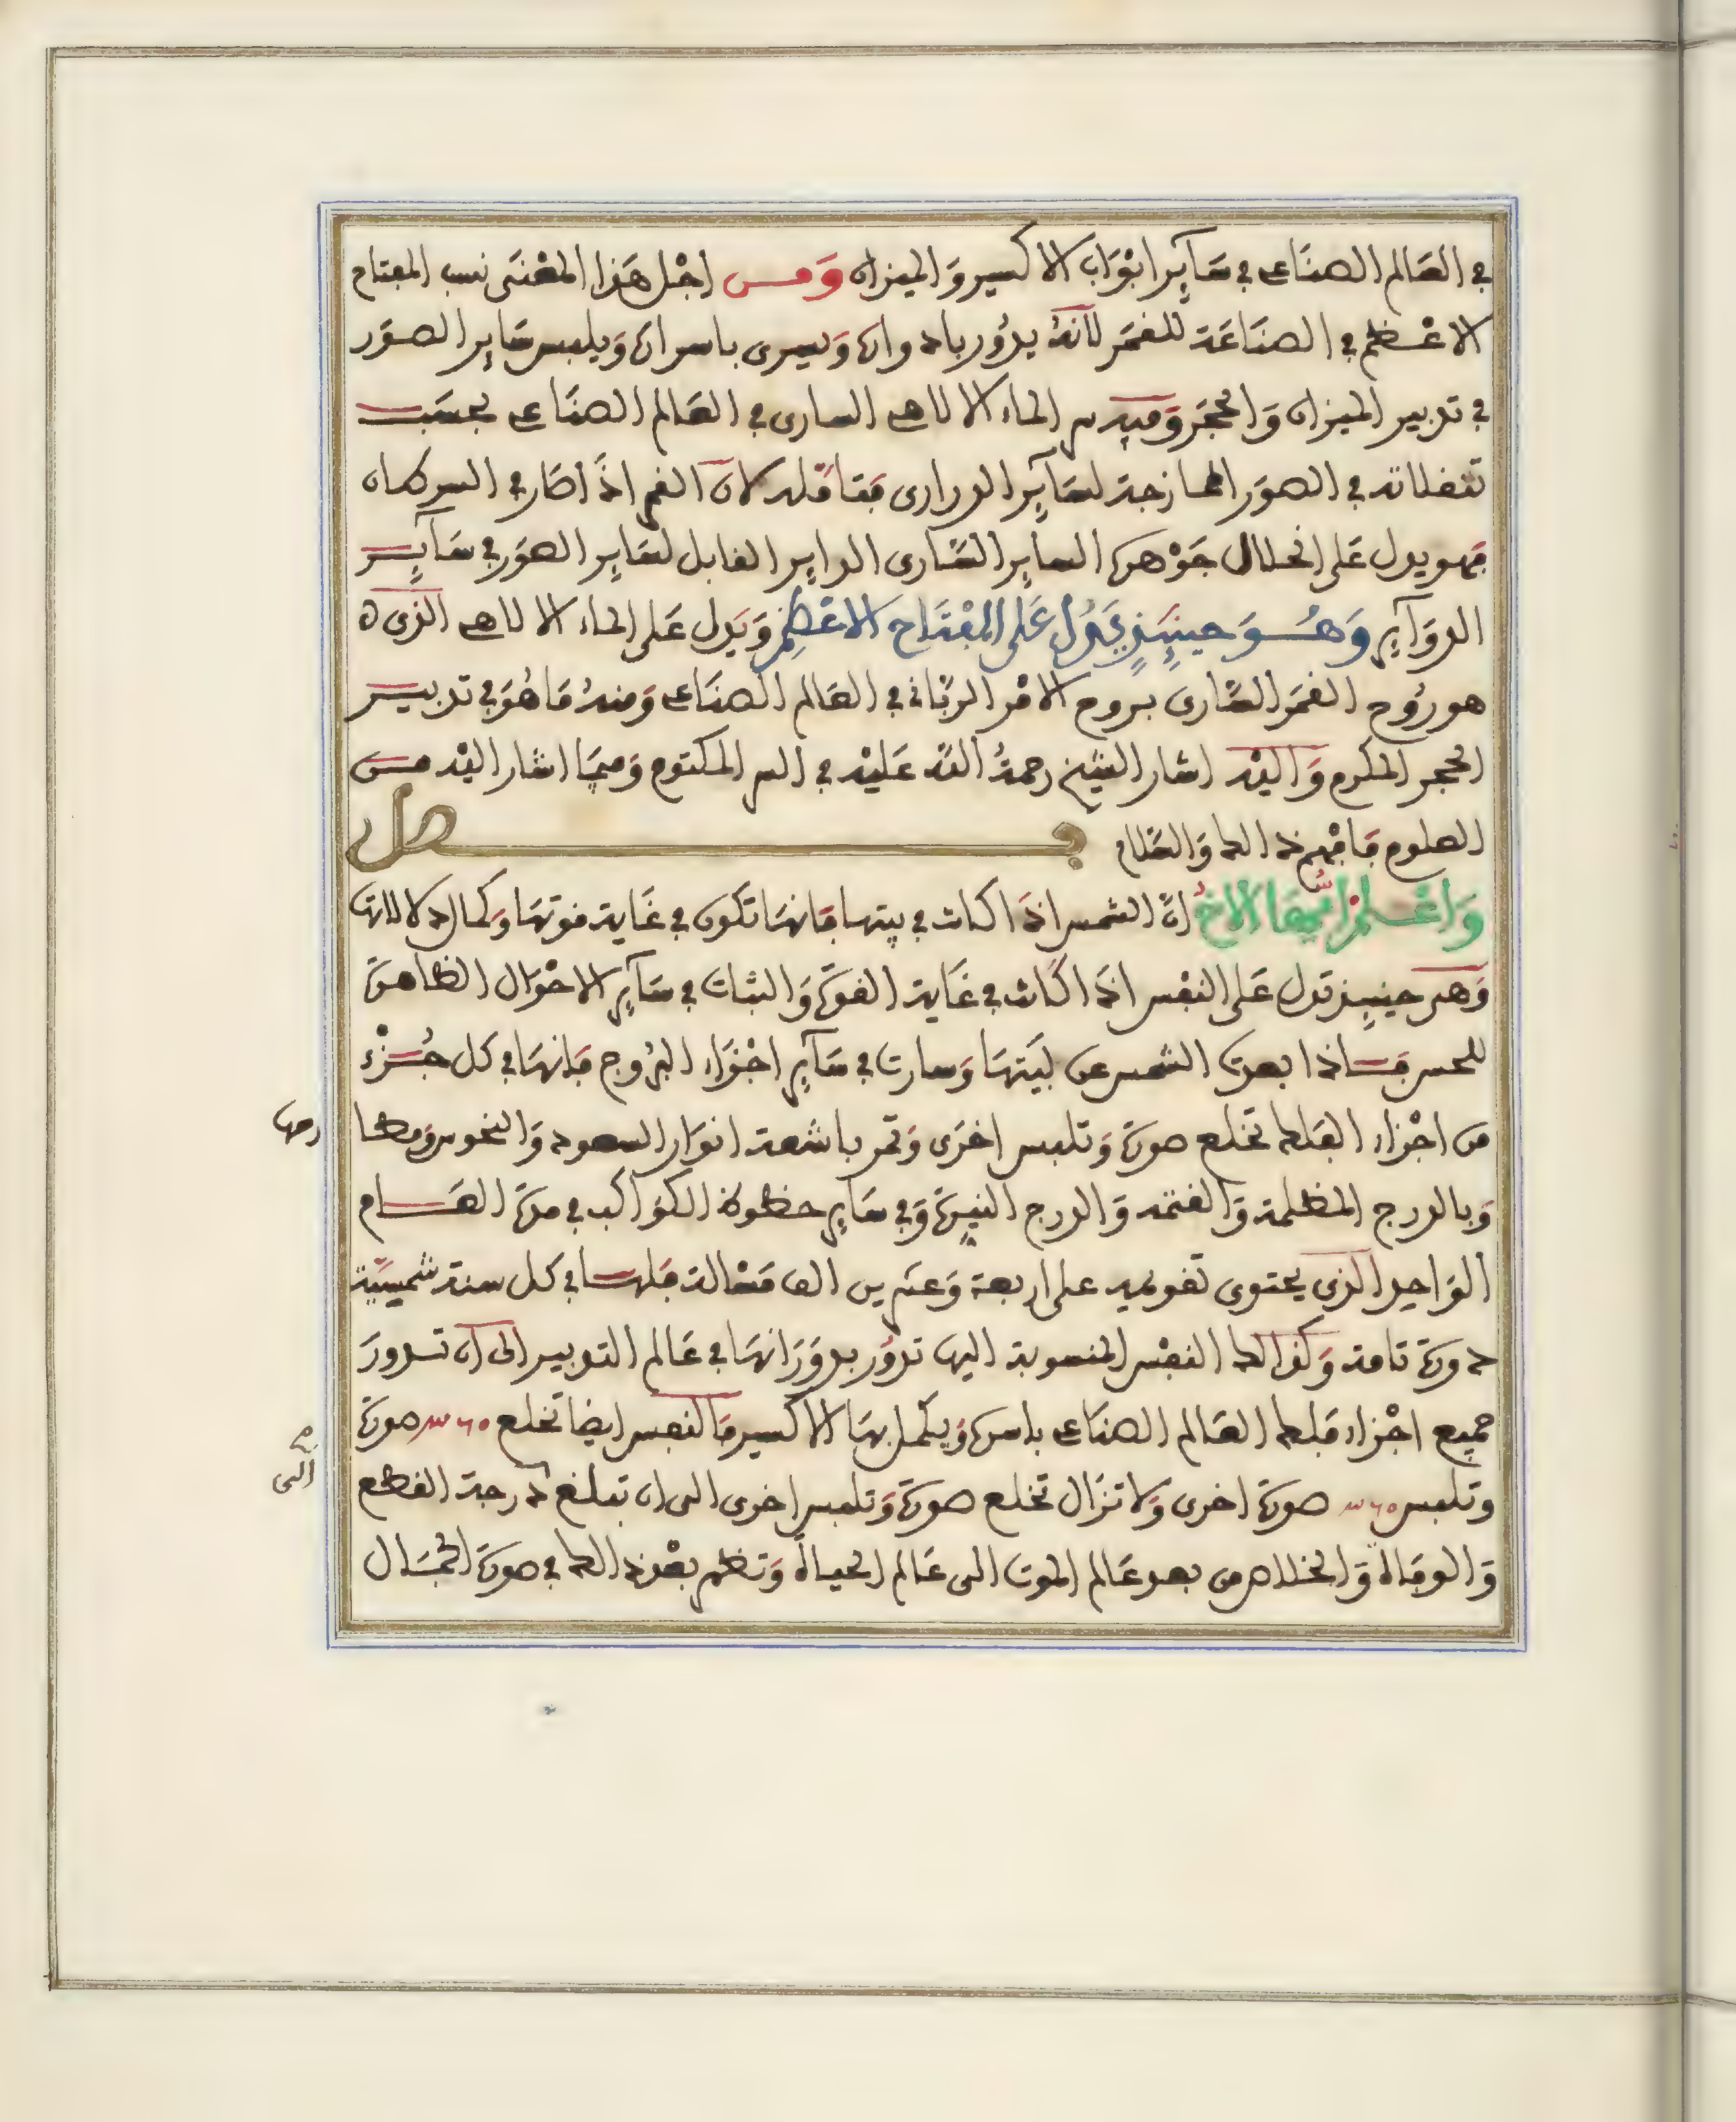 في العالم الصناعي في سَآيِر ابْوَاب الاكسير وَالميزان وَمن اجْل هَذا المعْنَى نسب المفتاح
الاعْظم في الصنَاعَة للقمَر لانهُ يدُور بادوارة وَيسرى باسرارة وَيلبس سَايِر الصوَر
في تدبير الميزان وَالحجَر وَفيه سر الماء الالاهي السارى في العَالم الصنَاعي بحسَب
تنقلاته في الصوَر الممازجة لسَآيِر الدرارى فقافله لان القمر اذَا صَار في السركان
فهو يدل عَلى انحلال جَوْهرة الساير السَّارى الداير القابل لسَايِر الصوَر في سَآيِر
الدوَآيِر وَهُوَ حينَيِذٍ يَدُل عَلى المفْتَاح الاعْظم وَيَدل عَلى الماء الالاهي الذى ه
هو رُوح القمَر السَّارى بروح الامْر الربَّانى في العَالم الصنَاعي وَمنهُ مَا هُوَ في تدبير
الحجر المكرم وَاليْه اشار الشيْخ رحمةُ اللّه عَليْه في السر المكتوم وَفيمَا اشار اليْه من
العلوم فافْهم ذلك وَالسَّلام فصل
وَاعْلمْ اَيُّهَا الاخُ انّ الشمس اذَا كانت في بيتها فَانهَا تكون في غَاية قوتهَا وَكمال دلالاتها
وَهى حينيِذ تدل عَلى النفْس اذَا كَانت في غَاية القوة وَالثبات في سَآيِر الاحْوَال الظاهرة
للحس فَاذا بعدت الشمس عن بَيْتهَا وَسارت في سَآيِر اجْزَاء البُرُوج فَانهَا في كل جُزْء
من اجْزاء الفلك تخلع صورة وَتلبس اخرَى وَتمر باشعة انوَار السعود وَالنحوس ومطا
رحها
وَبالدرج المظلمة وَالقتمة وَالدرج النيِرة وَفى سَآيِر حظوظ الكوَاكب في مدة العَام
الوَاحِد الذى يحتوى تقويمه على اربعة وَعشرين الف مَسْالة فلها في كل سنة شمْسِيَّة
دورة تامة وَكذالك النفْس المنسوبة اليها تدُور بدوَرَانهَا في عَالم التدبير الى ان تدورَ
جميع اجْزاء فَلك العَالم الصنَاعي باسرة وَيكمل بهَا الاكسير فالنفس ايضا تخلع ٣٦٠ صورة
وتلبس ٣٦٠ صورة اخرى وَلا تزَال تخلع صورة وَتلبس اخرى الى ان تبلغ درجة القطع
الى
وَالوفاة وَالخلاص من بعد عَالم الموت الى عَالم الحياة وَتظهر بعْد ذلك في صورة الجمَال